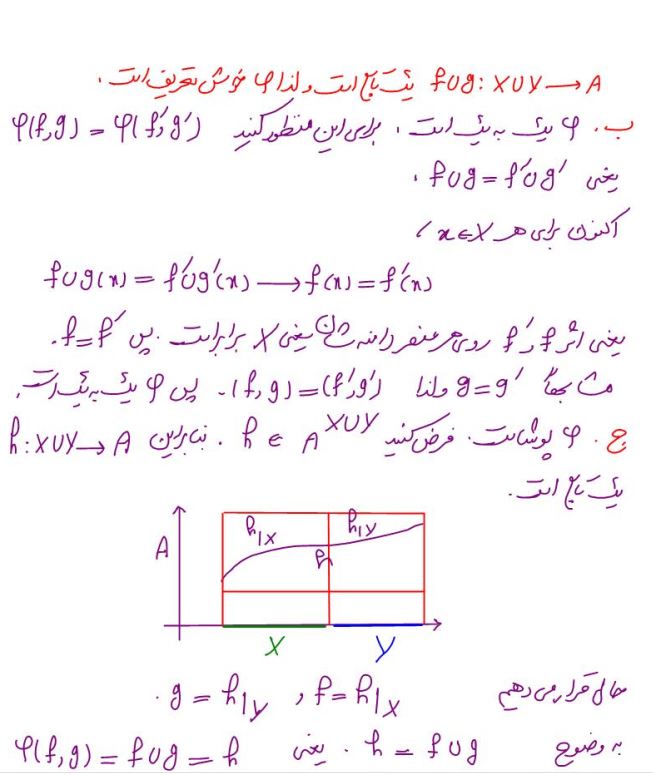 f∪g: X∪Y → A یک تابع است و لذا φ خوش تعریف است.
ب. φ یک به یک است، برای این منظور کنید φ(f,g) = φ(f′,g′)
یعنی f∪g = f′∪g′.
اکنون برای هر x∈X،
f∪g(x) = f′∪g′(x) → f(x) = f′(x)
یعنی اثر f و f′ روی هر عنصر دامنه شان یعنی X برابر است. پس f=f′.
مشابهاً g=g′ ولذا (f,g)=(f′,g′). پس φ یک به یک است.
ج. φ پوشاست. فرض کنید h ∈ A^{X∪Y}. بنابراین h: X∪Y → A
یک تابع است.
h|X h|Y
A h
X Y
حال قرار می دهیم f = h|X و g = h|Y.
به وضوح h = f∪g. یعنی φ(f,g) = f∪g = h